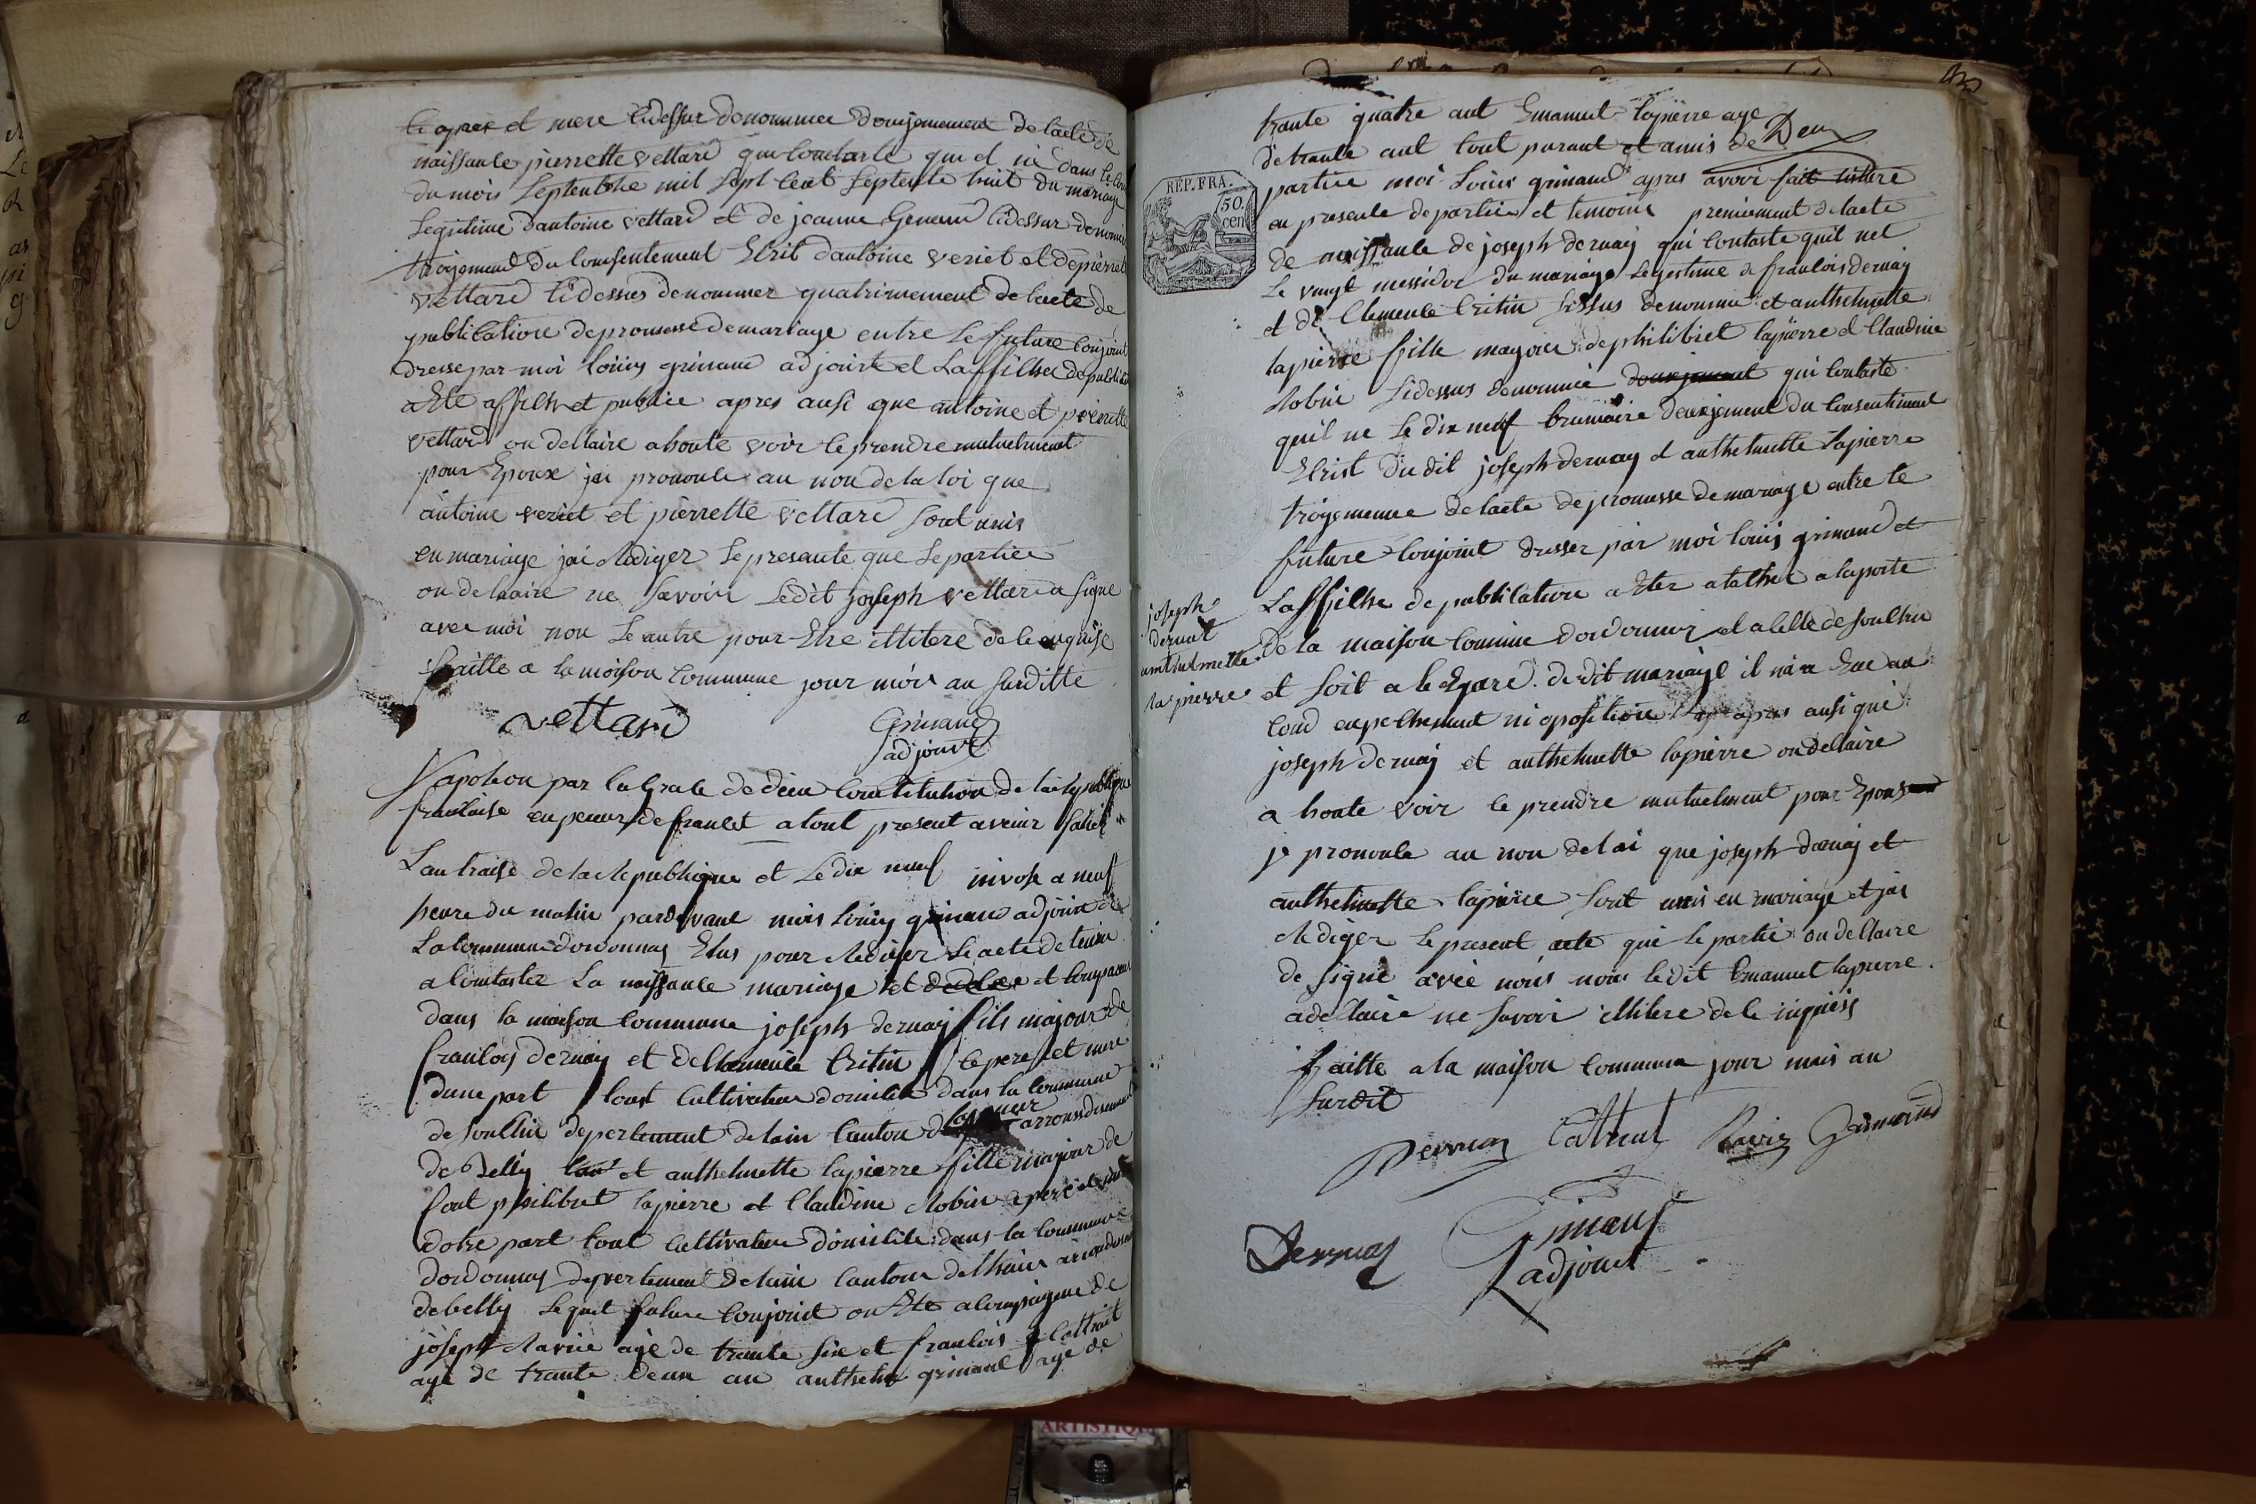 et mere cidessur denommee douzjemement de lacte de
naissance pierrette vettard qui contacte qui et né dans le cour
du mois Septembre mil Sept Cent Septente huit du mariage
Legitime dantoine vettard et de jeanne Genand cidessur denomm
troizjement du Consentement Ecrit dantoine veriet et de pierrette
vettard Cidessus denommer quatrimement de lacte de
publication de promesse de mariage entre Le future Conjoint
dresse par moi Louis grinand adjoint et Laffiches de publica
a Ete affiches et publiee apres ausi que antoine et pierrette
vettard on dellaire a houte voir ce prendre mutuelment
pour Epoux jai pronoule au non de la loi que
antoine veriet et pierrette vettard Sont unis
en mariage jai Rediger Le presante que Le parties
on dellaire ne Savoir Ledit joseph vettard a Signe
avec moi non Le autre pour Etre illitere de le enquise
faitte a la maison Commune jour mois an Surditte
vettard Grinand
adjoint
Napoleon par la Grace de dieu Constitution de la republique
francoise enpereur de francet a tout present avenir Salut
Lan traise de la Republique et Le dix neuf nivose a neuf
heure du matin pardevant mois Louis grinan adjoint de
La Commune dordonnas Elus pour Rediger Le acte de tenire
a Contaster La naissance mariage et et Conparau
dans la maison Commune joseph dernay fils majour de
francois dernay et de Clemence Critin Ce pere et mere
dune part tout Cultivateur domicilie dans la Commune
de Soultin depertement de lain Canton d Lagnieur arrondisement
de Belly et anthelmette lapierre fille majour de
Font philibert lapierre et Claudine Robin Ce pere et mere
dotre part tout Cultivateur domicilie dans la Commune
dordonnas depertement de lain Canton de Lhuis arrondisement
de belly Lequel future Conjoint on Ete aConpagne de
joseph Ravier age de trante Six et francois Cottrait
age de trante deux an anthelm grinand age de
REP. FRA.
50.
cen
trante quatre ant Emanuel lapierre age
de trante ant tout parant et amis de Deux
partiee moi Louis grinand apres avoir fait Listure
en presente de partiee et temoins premiement de lacte
de naissance de joseph dernay qui Contaste quil net
Le vingt messidor du mariage Legestime de francois dernay
et de Clemence Critin Sissus denomme et anthelmette
lapierre fille mayour de philibiet lapierre et Claudine
Robin Sidessus denommee qui Contaste
quil ne Le dix neuf brumaire deuxjement du Consentiment
Ecrist Du dit joseph dernay et anthelmette Lapierre
troizjemeure de lacte de promesse de mariage entre le
future Conjoint dresser par moi louis grinand et
Laffiche de publication a Eter atathee a laporte
joseph
dernai
anthelmette
lapierre
de la maison Comune dordonnas et a celle de Soultin
et Soit a le Egard de dit mariage il ni a Eue au
Coud enpechement ni oposition apres ausi que
joseph dernay et anthelmette lapierre on dellaire
a houte voir ce prendre mutuelment pour Epous
je pronoule au non de loi que joseph dernay et
anthelmette lapierre Sont unis en mariage et jai
Rediger le present acte que le partie on dellaire
de Signe avec nous nois ledit Emanuel lapierre
a dellaire ne Savoir illitere de le inquiss
faitte a la maison Commun jour mois an
Surdit
Dernay Cottrait Ravier Grimand
Dernay Grinand
adjoint
ARTISTIQU